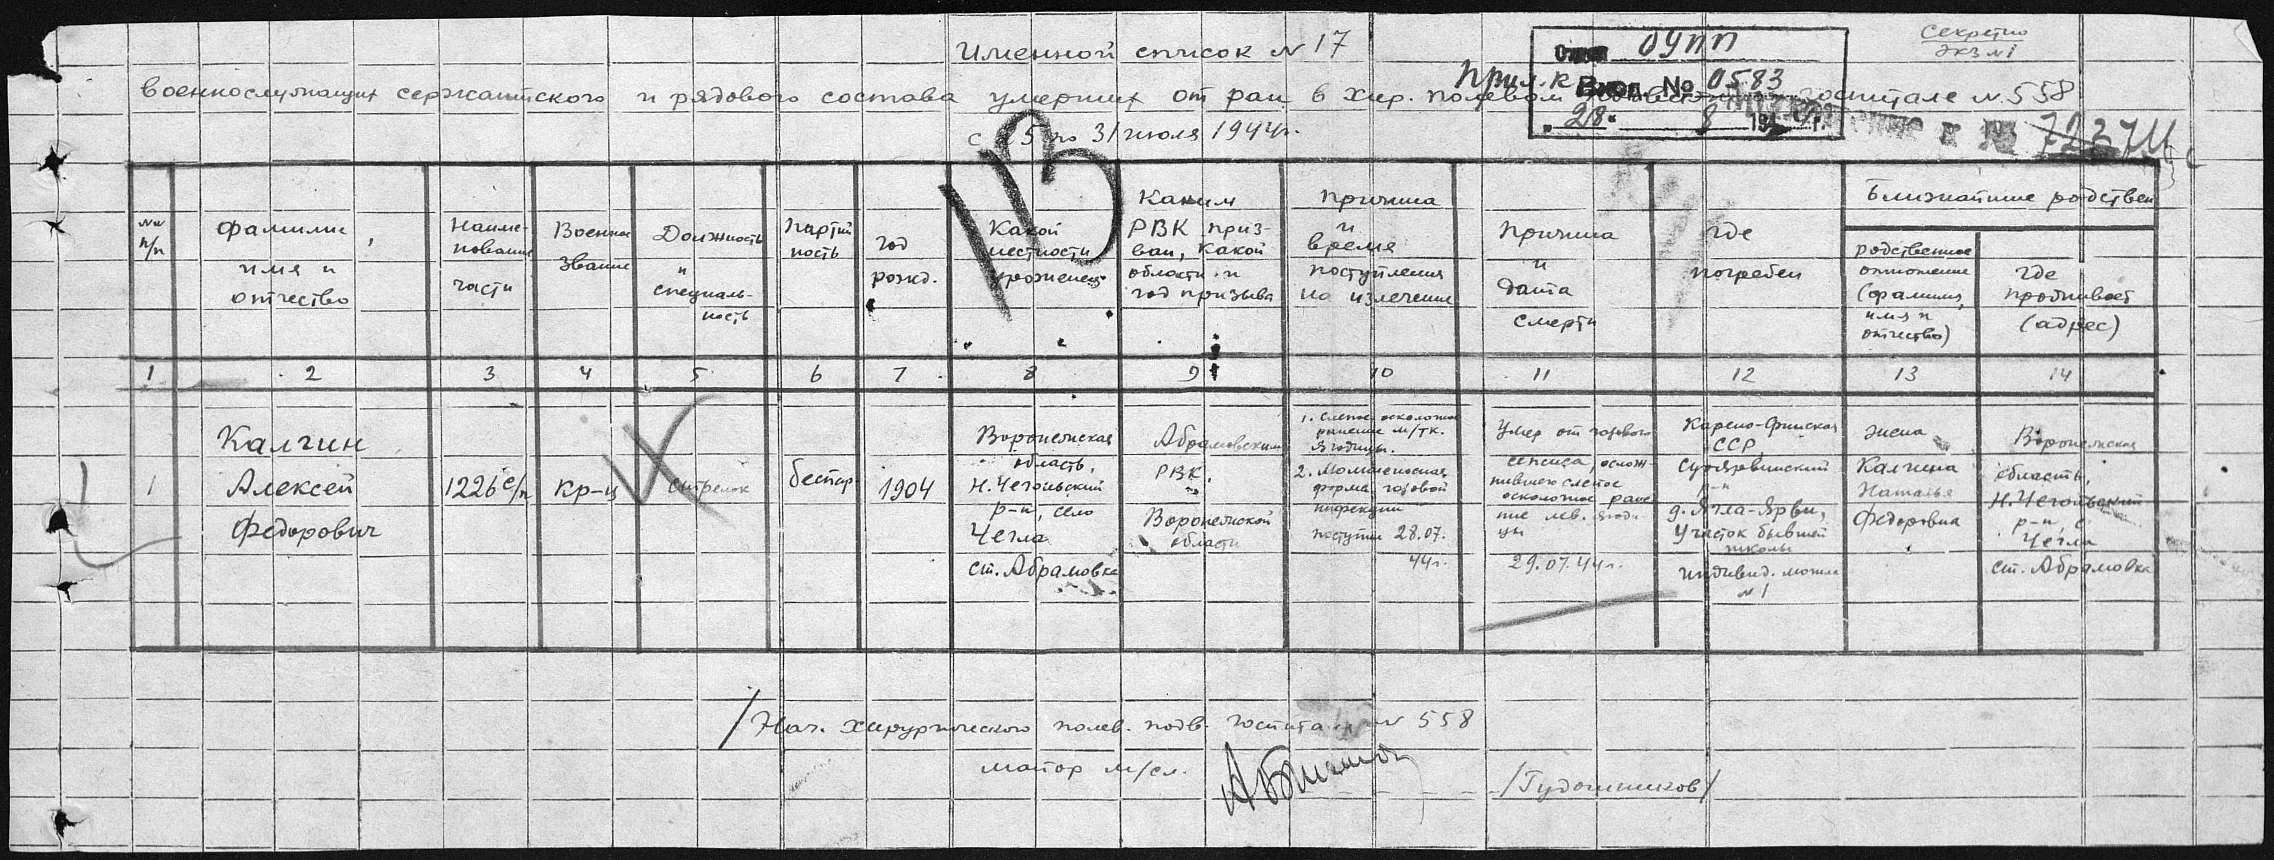 Секретно
экз №1
Именной список № 17
ОУПП
Вход. № 0583
28 8 194 г.
военнослужащих сержантского и рядового состава умерших от ран в хир. полевом госпитале № 558
с 25 по 31 июля 1944г.
13
№№ п/п
фамилия, имя и отчество
Наименование части
Военное звание
Должность и специальность
партийность
год рожд.
Какой местности уроженец
Каким РВК призван, какой области и год призыва
Причина и время поступления на излечение
Причина и дата смерти
где погребен
Ближайшие родствен
родственное отношение (фамилия, имя и отчество)
где проживает (адрес)
1 2 3 4 5 6 7 8 9 10 11 12 13 14
1
Калгин
Алексей
Федорович
1226 с/п
Кр-ц
стрелок
беспар
1904
Воронежская
область,
Н.Чегольский
р-н, село
Чегла
ст. Абрамовка
Абрамовским
РВК,
Воронежской
области
1. Слепое осколочное
ранение м/тк.
ягодицы.
2. Молниеносная
форма газовой
инфекции
поступил 28.07.
44г.
Умер от газового
сепсиса, ослож-
нившего слепое
осколочное ране
ние лев. ягоди
цы
29.07.44г.
Карело-Финская
ССР
Суоярвинский
р-н
д. Ягла-Ярви,
Участок бывшей
школы
индивид. могила
№1
жена
Калгина
Наталья
Федоровна
Воронежская
область,
Н.Чегольский
р-н, с
Чегла
ст. Абрамовка
/Нач. хирургического полев. подв. госпита № 558
майор м/сл.
/Гудошников/